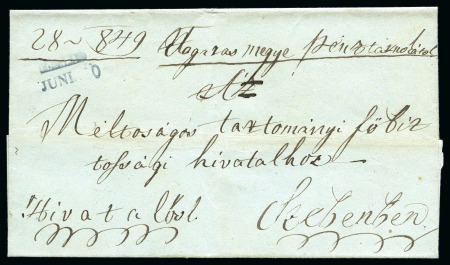 28 ~ 849 Fogaras megye pénztárnokától
JUNI 0
Az
Méltóságos tartományi főbiz
tossági hivatalhoz —
Hivatalból.
Szebenben